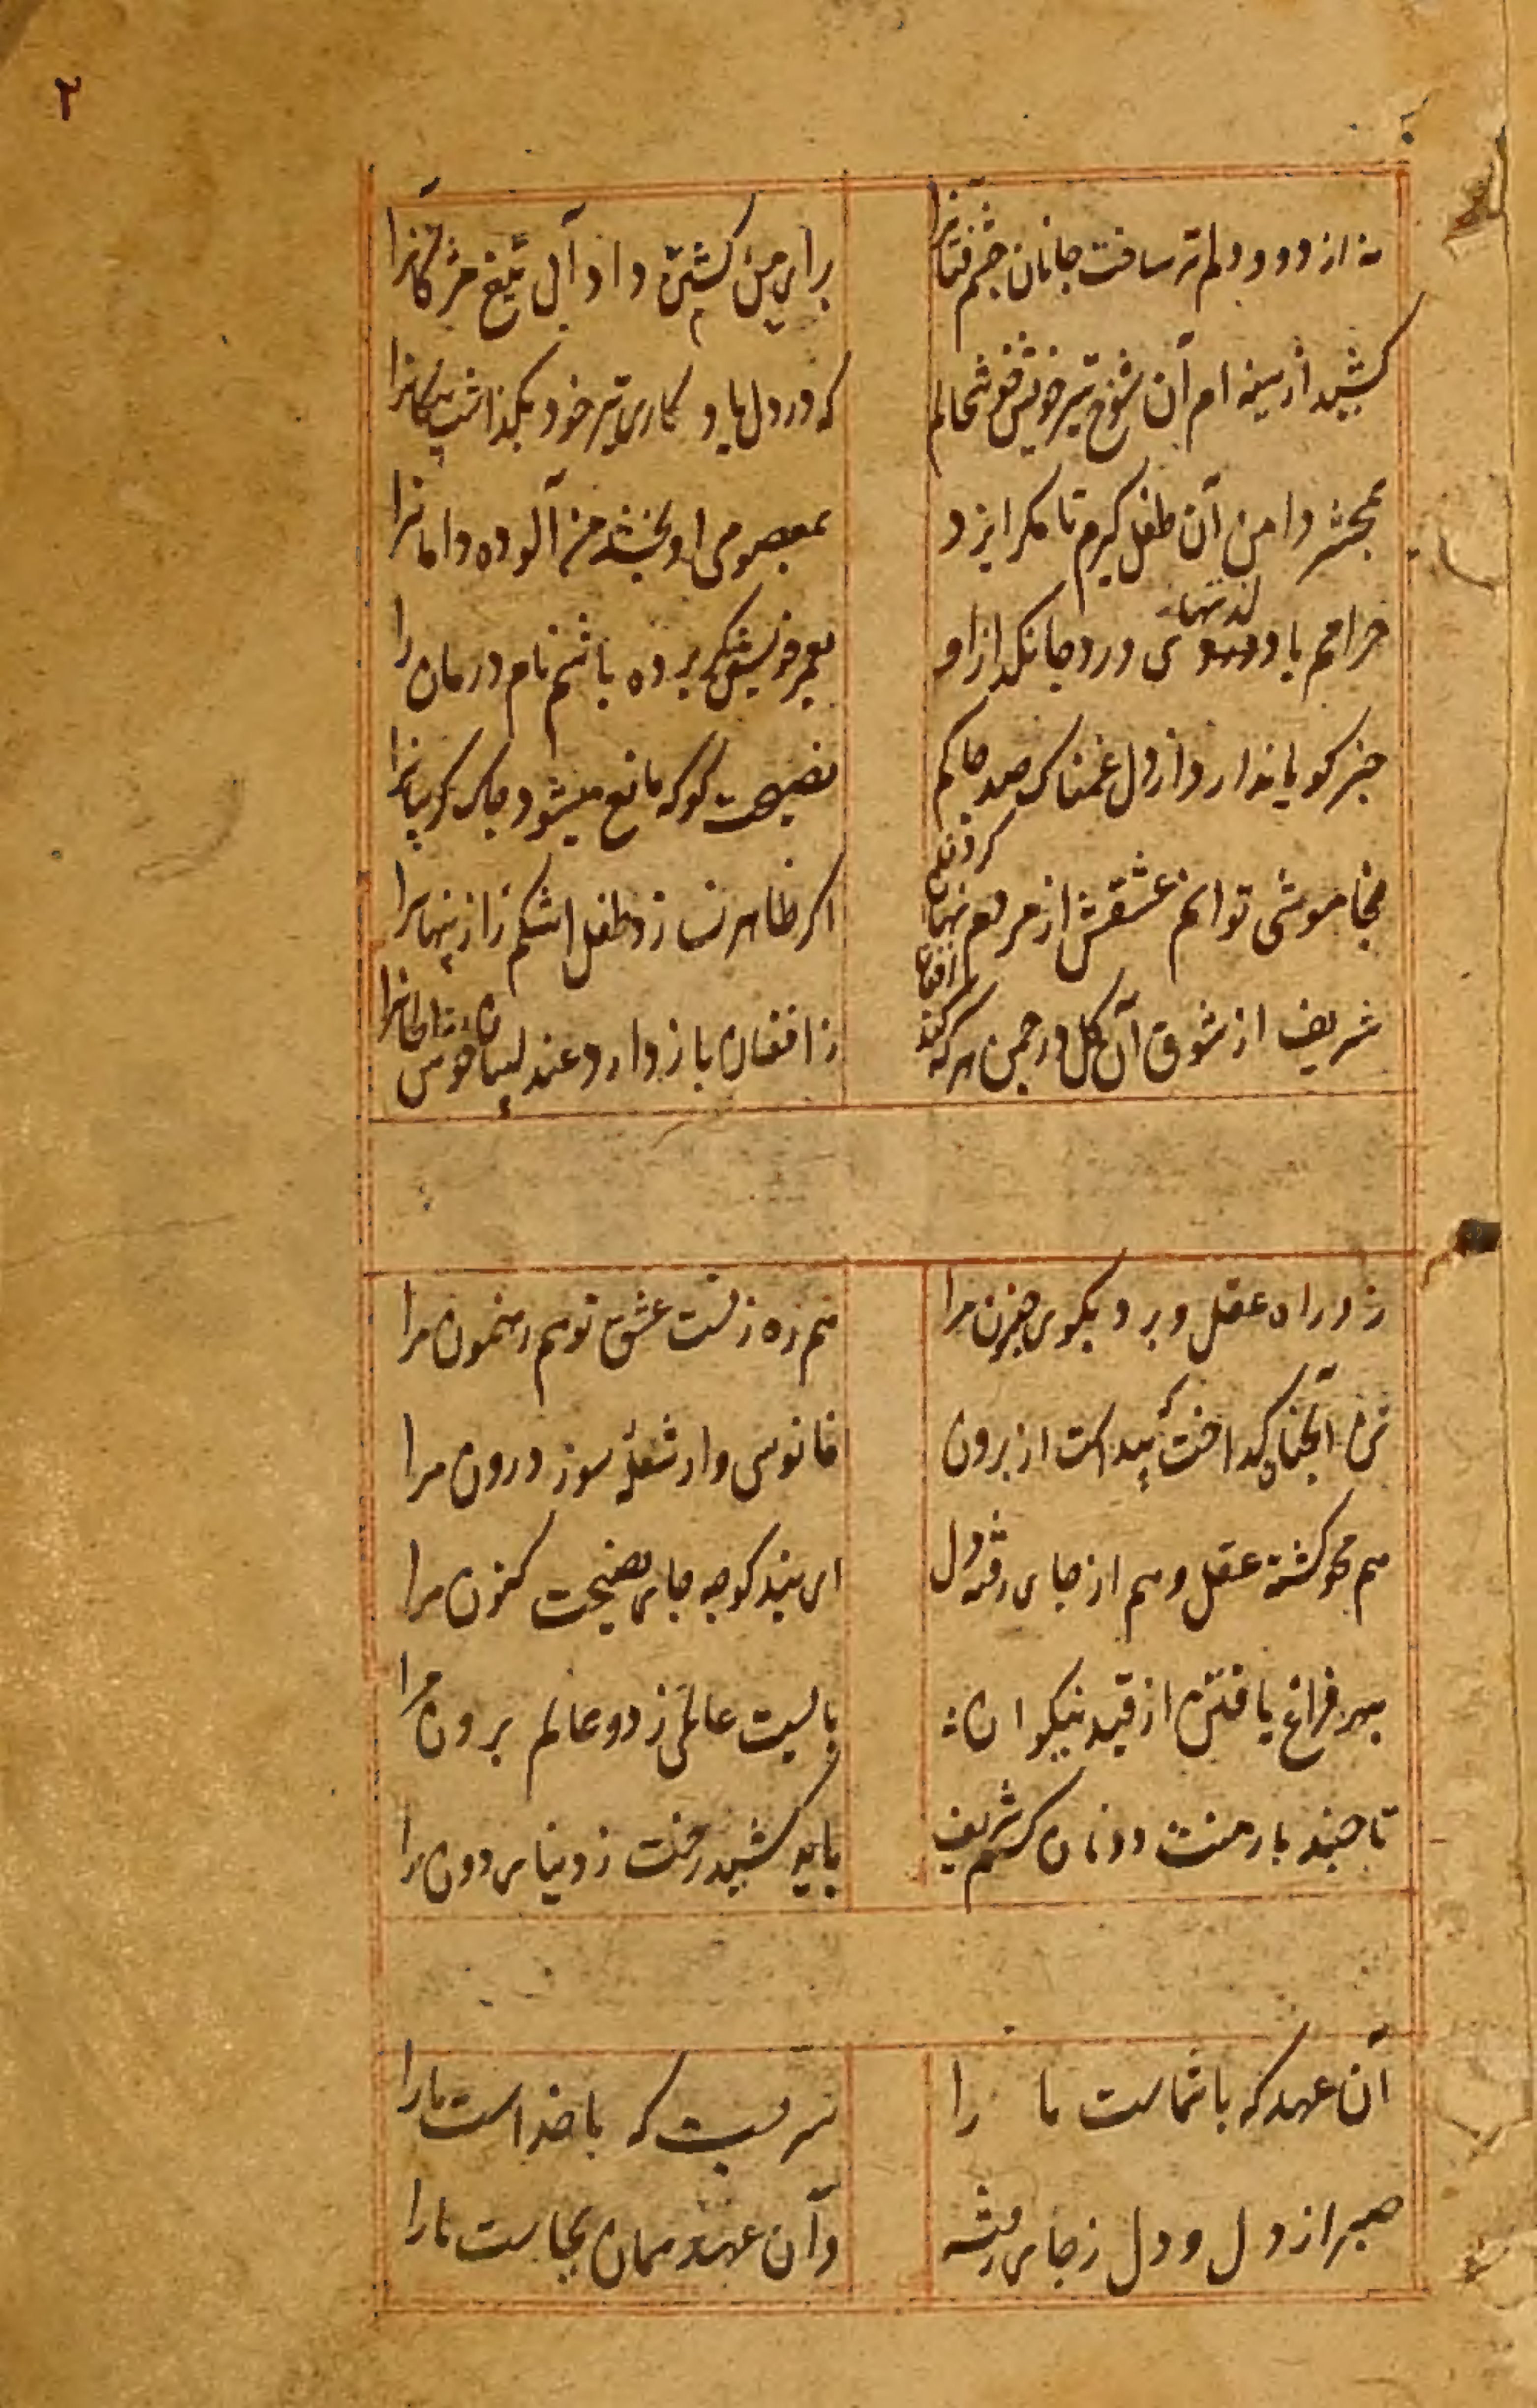 ۲
نه از دود دلم تر ساخت جانان چشم فتانرا
برای من کشتن داد آبی تیغ مژگانرا
کشید از سینه ام آن شوخ تیر خویش و خوشحالم
که در دل یادکاری تیر خود بکذاشت پیکانرا
بمحشر دامن آن طفل کیرم تا مکر ایزد
بمعصومی او بخشد من آلوده دامانرا
حرامم باد لذتهای درد جانکداز او
بعمر خویش کر برده باشم نام درمان را
خبر کویا ندارد از دل غمناک صد چاکم
نصیحت کو که مانع میشود چاک کریبانرا
بخاموشی توانم عشقش از مردم نهان کردن
اکر ظاهر نسازد طفل اشکم راز پنهانرا
شریف از شوق آن کل در چمن هر که کند افغان
ز افغان باز دارد عندلیبان خوش الحانرا
زد راه عقل و برد بکوی جنون مرا
هم ره زنست عشق تو هم رهنمون مرا
تن آنچنان کداخت که پیداست از برون
فانوس وار شعلهٔ سوز درون مرا
هم محو کشته عقل و هم از جای رفته دل
ای پند کو چه جای نصیحت کنون مرا
بهر فراغ یافتن از قید نیکوان
بایست عالمی ز دو عالم برون مرا
تا چند بار منت دونان کشم شریف
باید کشید رخت ز دنیای دون مرا
آن عهد که با شماست ما را
سریست که با خداست ما را
صبر از دل و دل ز جای رفته
وآن عهد همان بجاست ما را